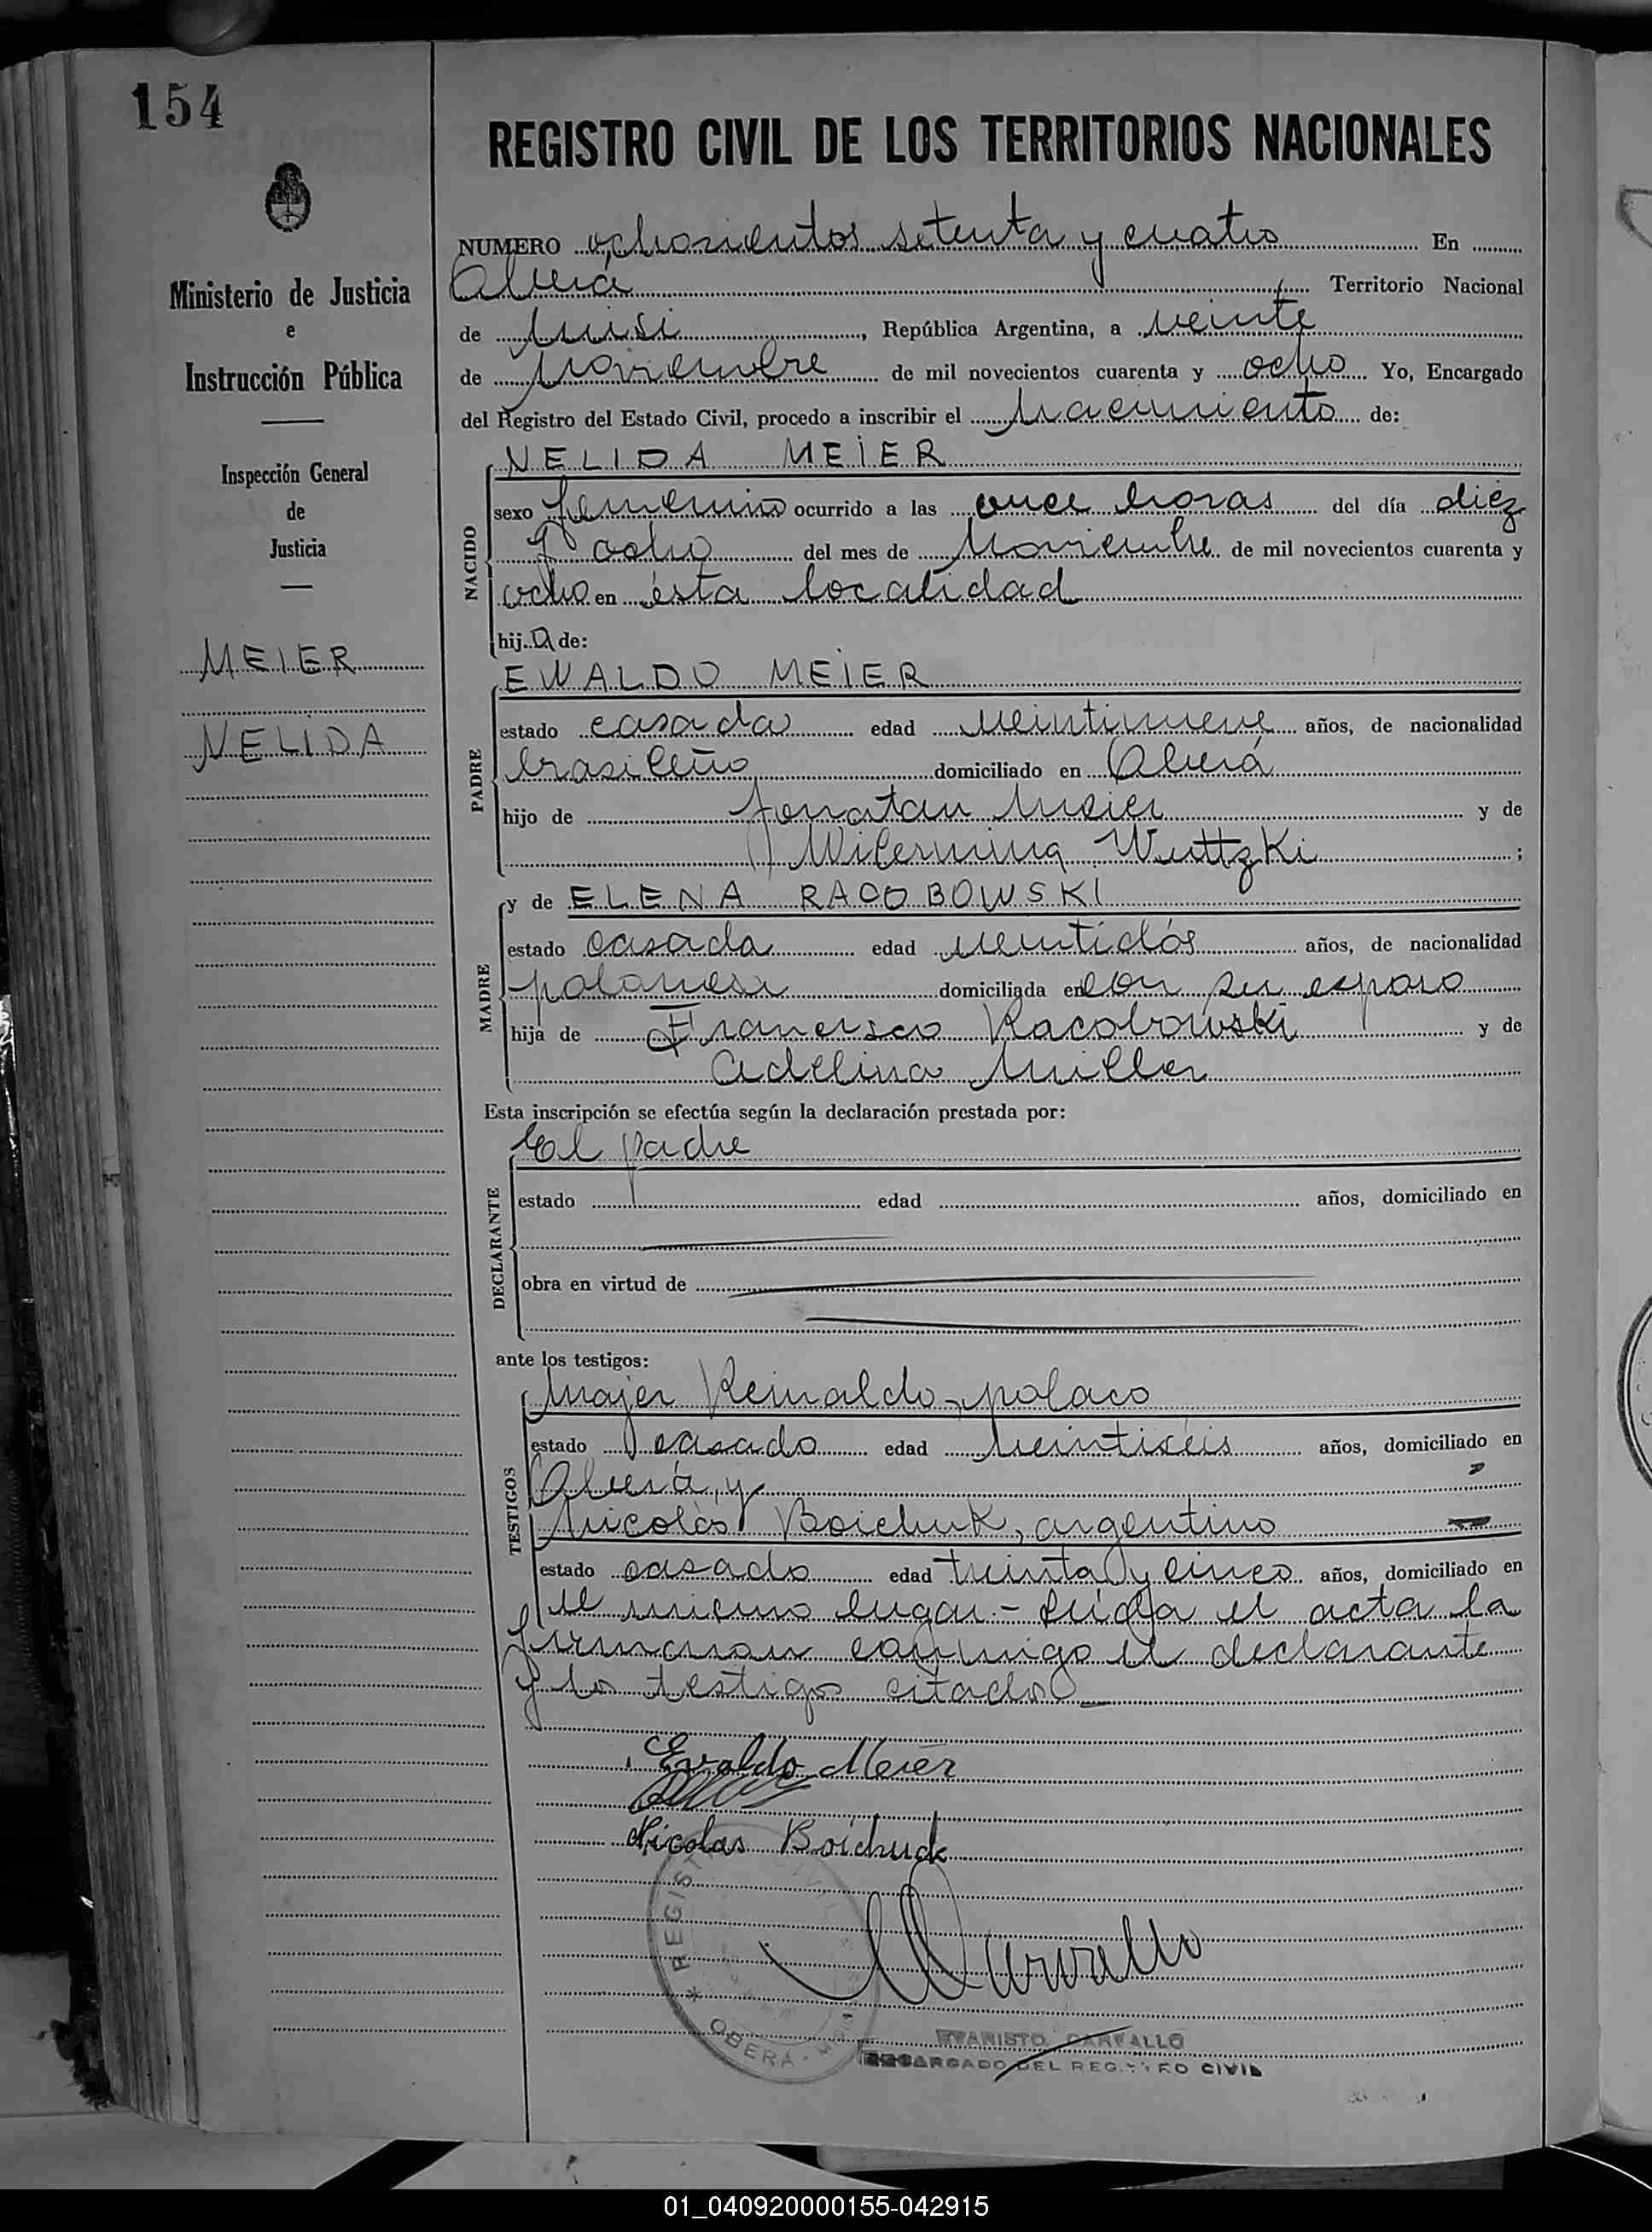 154
REGISTRO CIVIL DE LOS TERRITORIOS NACIONALES
Ministerio de Justicia
e
Instrucción Pública
Inspección General
de
Justicia
MEIER
NELIDA
NUMERO ochocientos setenta y cuatro En
Oberá Territorio Nacional
de Misi, República Argentina, a veinte
de Noviembre de mil novecientos cuarenta y ocho Yo, Encargado
del Registro del Estado Civil, procedo a inscribir el nacimiento de:
NACIDO
NELIDA MEIER
sexo femenino ocurrido a las once horas del día diez
y ocho del mes de Noviembre de mil novecientos cuarenta y
ocho en ésta localidad
hija de:
PADRE
EWALDO MEIER
estado casado edad veintinueve años, de nacionalidad
brasileño domiciliado en Oberá
hijo de Jonatan Meier y de
Wilermina Wuttzki ;
MADRE
y de ELENA RACOBOWSKI
estado casada edad veintidós años, de nacionalidad
polanesa domiciliada en con su esposo
hija de Francisco Racobowski y de
Adelina Miller
Esta inscripción se efectúa según la declaración prestada por:
DECLARANTE
El padre
estado edad años, domiciliado en
obra en virtud de
ante los testigos:
TESTIGOS
Majer Reinaldo, polaco
estado casado edad veintiséis años, domiciliado en
Oberá, y
Nicolás Boichuk, argentino
estado casado edad treinta y cinco años, domiciliado en
el mismo lugar.- Leída el acta la
firmaron conmigo el declarante
y los testigos citados
Evaldo Meier
Nicolas Boichuck
Carvallo
REGISTRO CIVIL
OBERA
EVARISTO CARVALLO
ENCARGADO DEL REGISTRO CIVIL
01_040920000155-042915